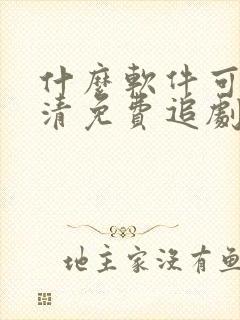 什麼軟件可
清免費追劇
地主家沒有魚